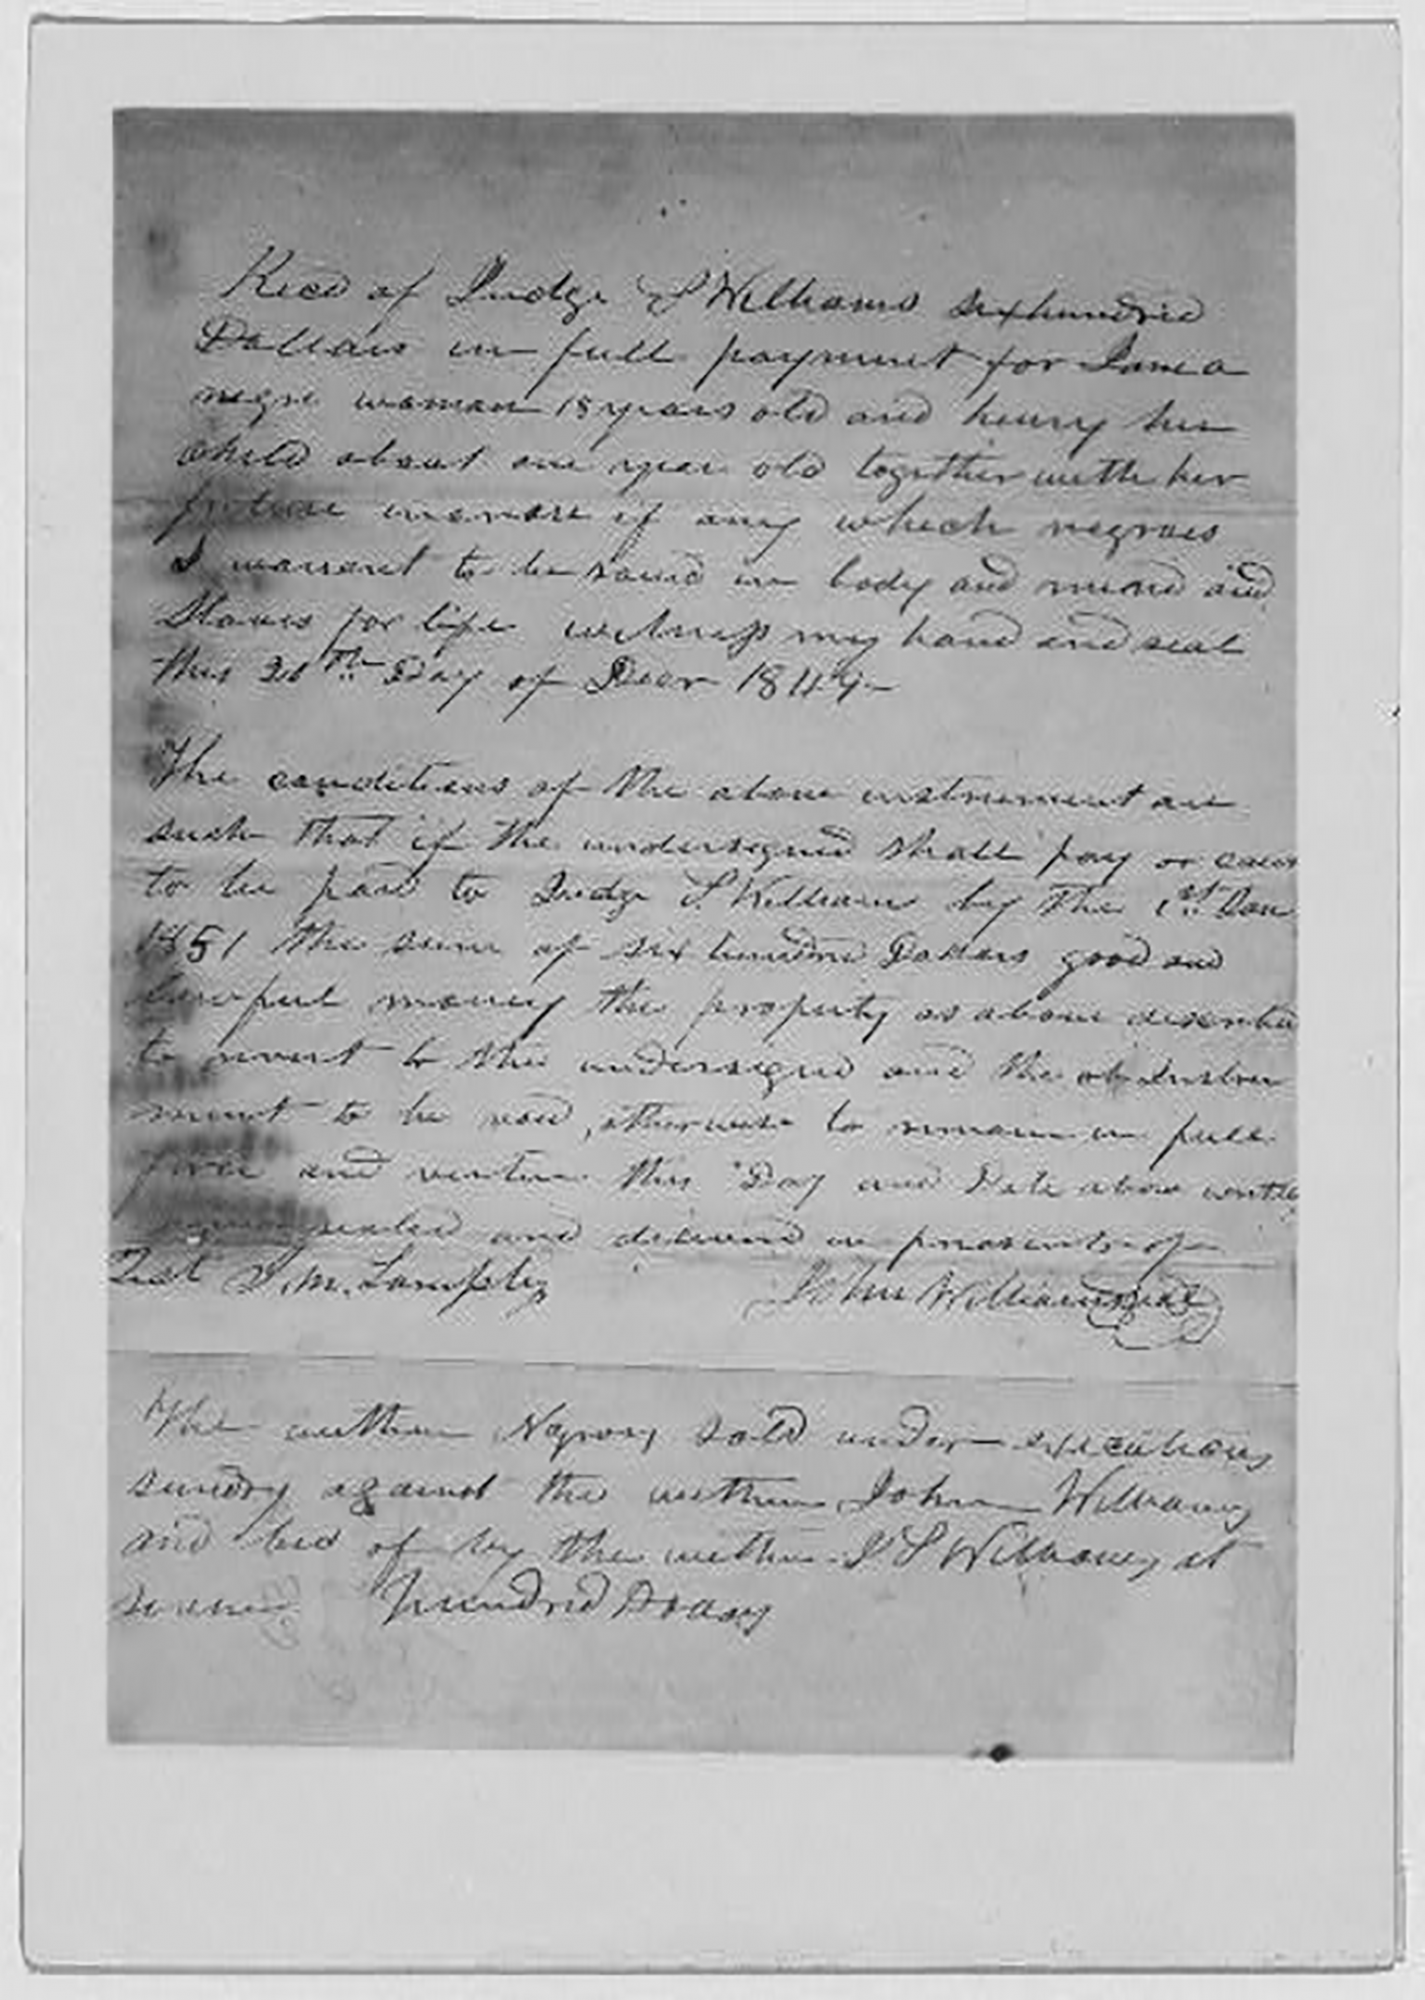 Recd of Judge S Williams six hundred
Dollars in full payment for Jane a
negro woman 18 years old and henry her
child about one year old together with her
future increase if any which negroes
I warrant to be sound in body and mind and
Slaves for life witness my hand and seal
this Day of Decr 1849
The conditions of the above instrument are
such that if the undersigned shall pay or caus
to be paid to Judge S. Williams by the 1st Jan
1851 the sum of six hundred Dollars good and
lawful money the property as above described
to revert to the undersigned and the ab Instru
ment to be void, otherwise to remain in full
force and virtue this Day and Date above writte
sealed and delivered in presents of
Test J. M. Lampley John Williams seal
The within Negroes sold under executions
sundry against the within John Williams
and bid of by the within J S Williams at
hundred